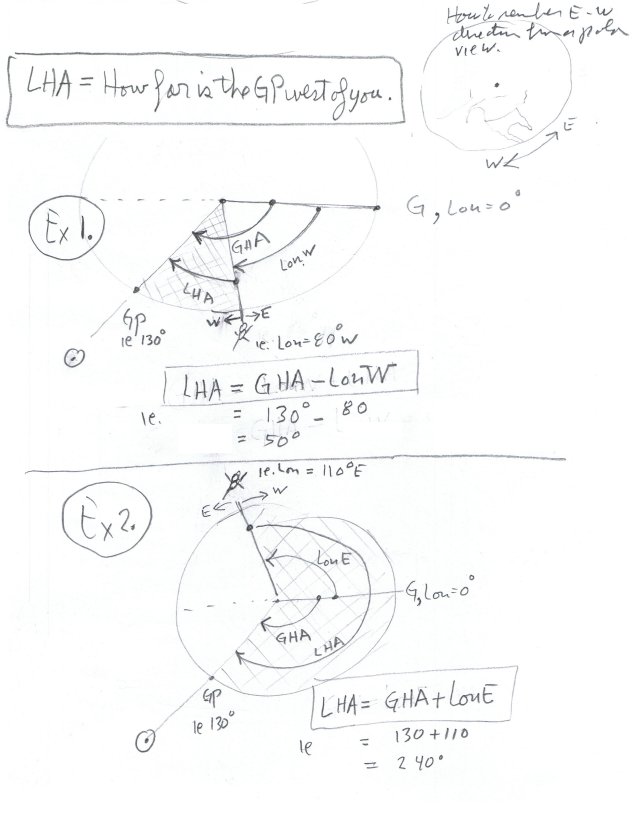 How to remember E-W
direction from a polar
view.
LHA = How far is the GP west of you.
E
W
Ex 1.
G, Lon=0°
GHA
LonW
LHA
GP
ie 130°
W E
ie. Lon=80°W
LHA = GHA - LonW
ie. = 130° - 80
= 50°
ie. Lon = 110°E
E W
Ex 2.
LonE
G, Lon=0°
GHA
LHA
GP
ie 130°
LHA = GHA + LonE
ie = 130 + 110
= 240°